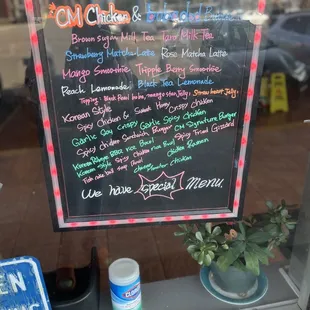 CM Chicken &
Brown sugar Milk Tea, Taro Milk Tea
Strawberry Matcha Latte Rose Matcha Latte
Mango Smoothie, Tripple Berry Smoothie
Peach Lemonade, Black Tea Lemonade
Topping: Black Pearl boba, mango star Jelly, Strawberry Jelly,
Korean Style
Spicy Chicken & Sweet Honey Crispy chicken
Garlic Soy Crispy Garlic Spicy chicken
Spicy chicken Sandwich, Burger, CM Signature Burger
Korean BBQ rice Bowl Spicy Fried Gizzard
Korean Style Spicy chicken rice Bowl chicken Ramen
Fish cake and Soup
We have Special Menu
EN
CLOROX